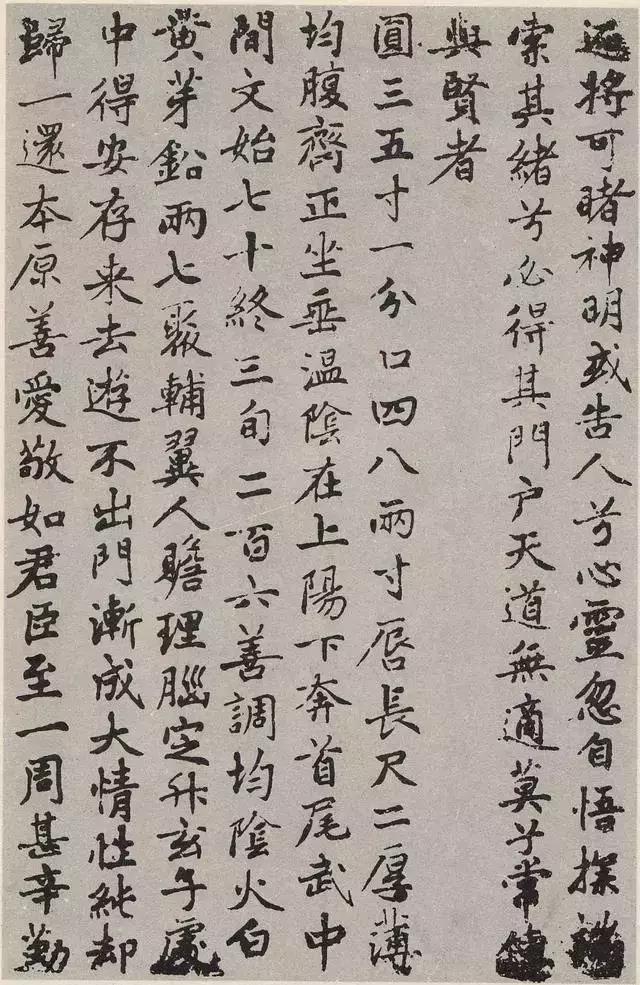 遍将可睹神明或告人兮心靈忽自悟探端
索其緒兮必得其門户天道無適莫兮常傳
與賢者
圓三五寸一分口四八兩寸唇長尺二厚薄
均腹齊正坐垂温陰在上陽下奔首尾武中
間文始七十終三旬二百六善調均陰火白
黄芽鉛兩七聚輔翼人贍理腦定升玄子處
中得安存来去遊不出門漸成大情性純却
歸一還本原善愛敬如君臣至一周甚辛勤